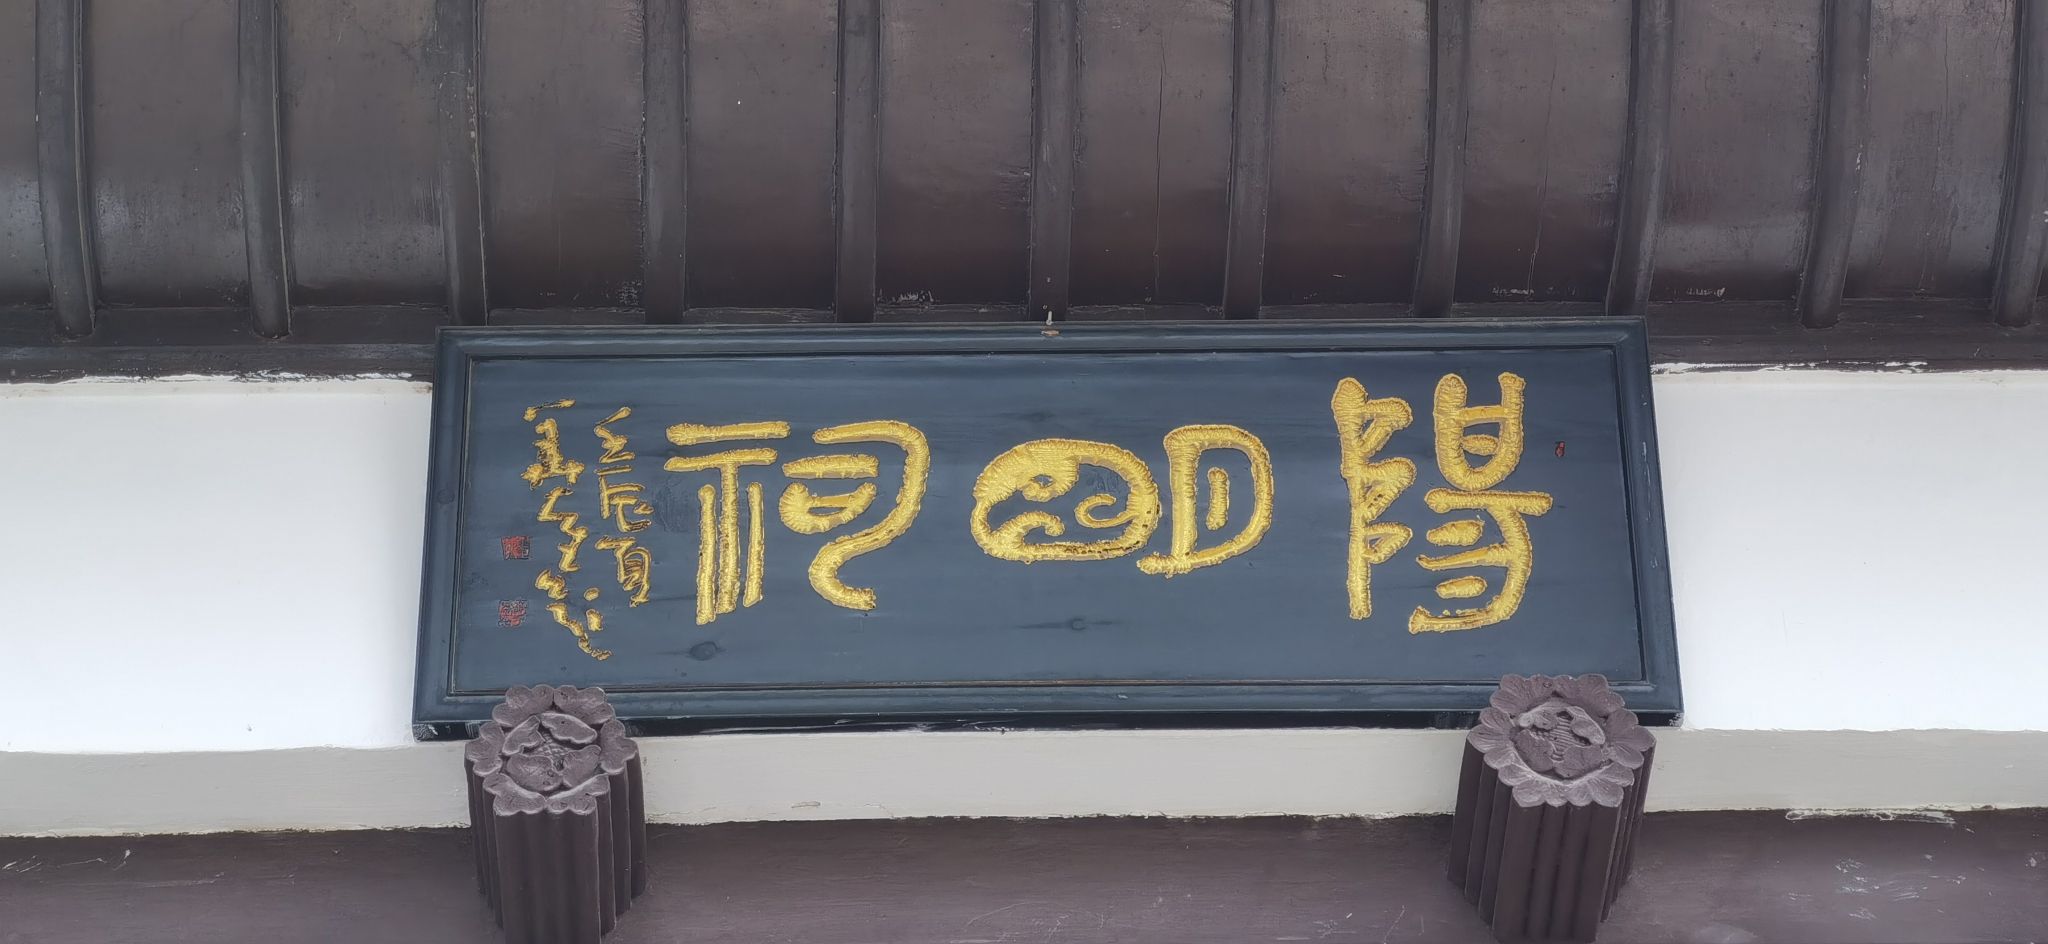 陽明祠
壬辰夏